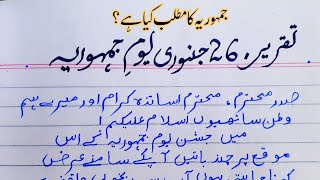 جمہوریہ کا مطلب کیا ہے؟
تقریر . 26 جنوری یومِ جمہوریہ
صدر محترم، محترم اساتذہ کرام اور میرے ہم
وطن ساتھیوں اسلام علیکم!
میں جشنِ یومِ جمہوریہ کے اس
موقع پر چند باتیں آپ کے سامنے عرض